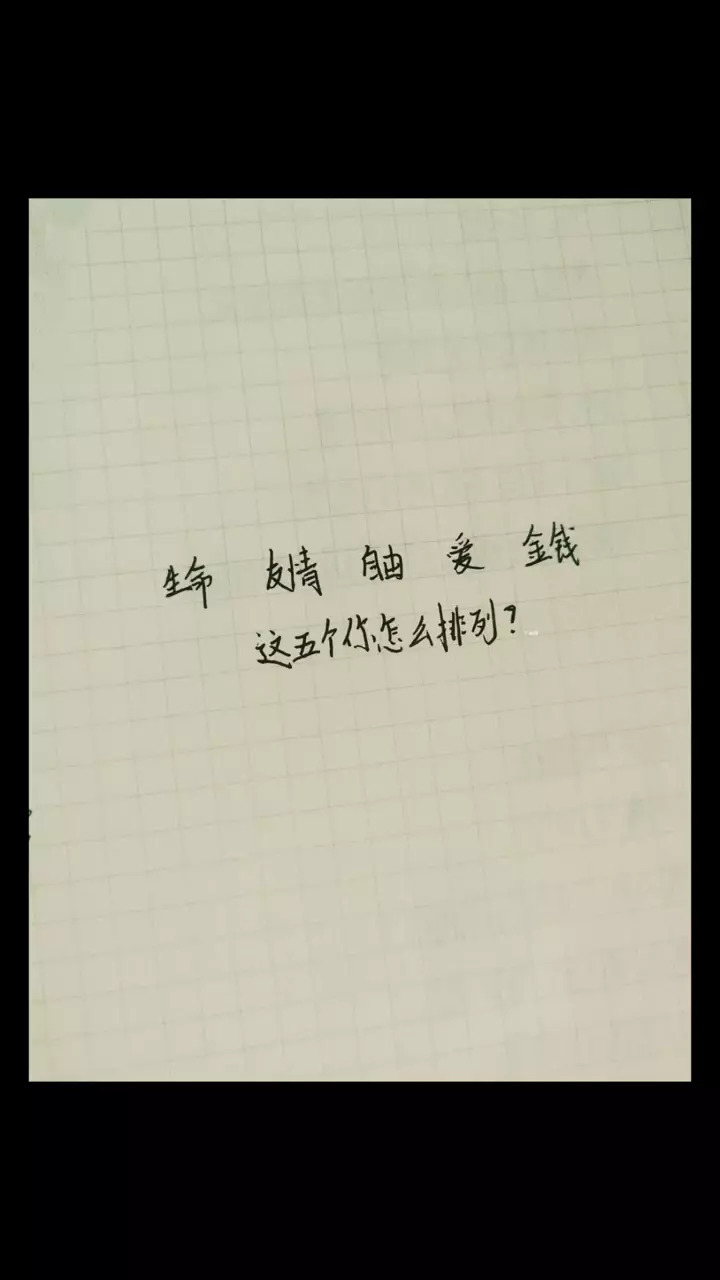 生命 友情 自由 爱 金钱
这五个你怎么排列?